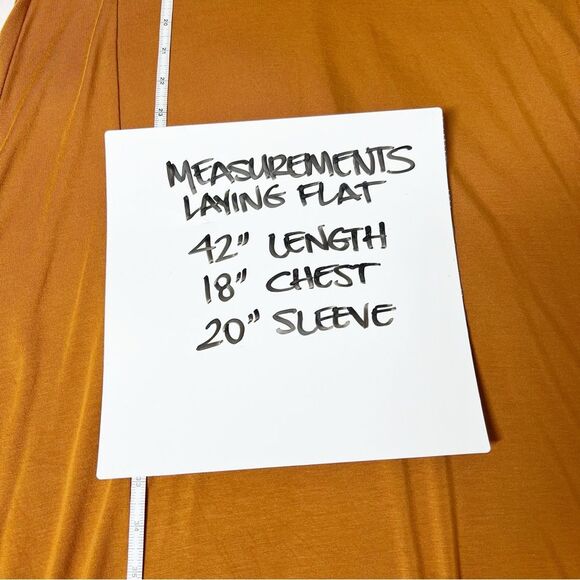 20
21
22
23
MEASUREMENTS
LAYING FLAT
42" LENGTH
18" CHEST
20" SLEEVE